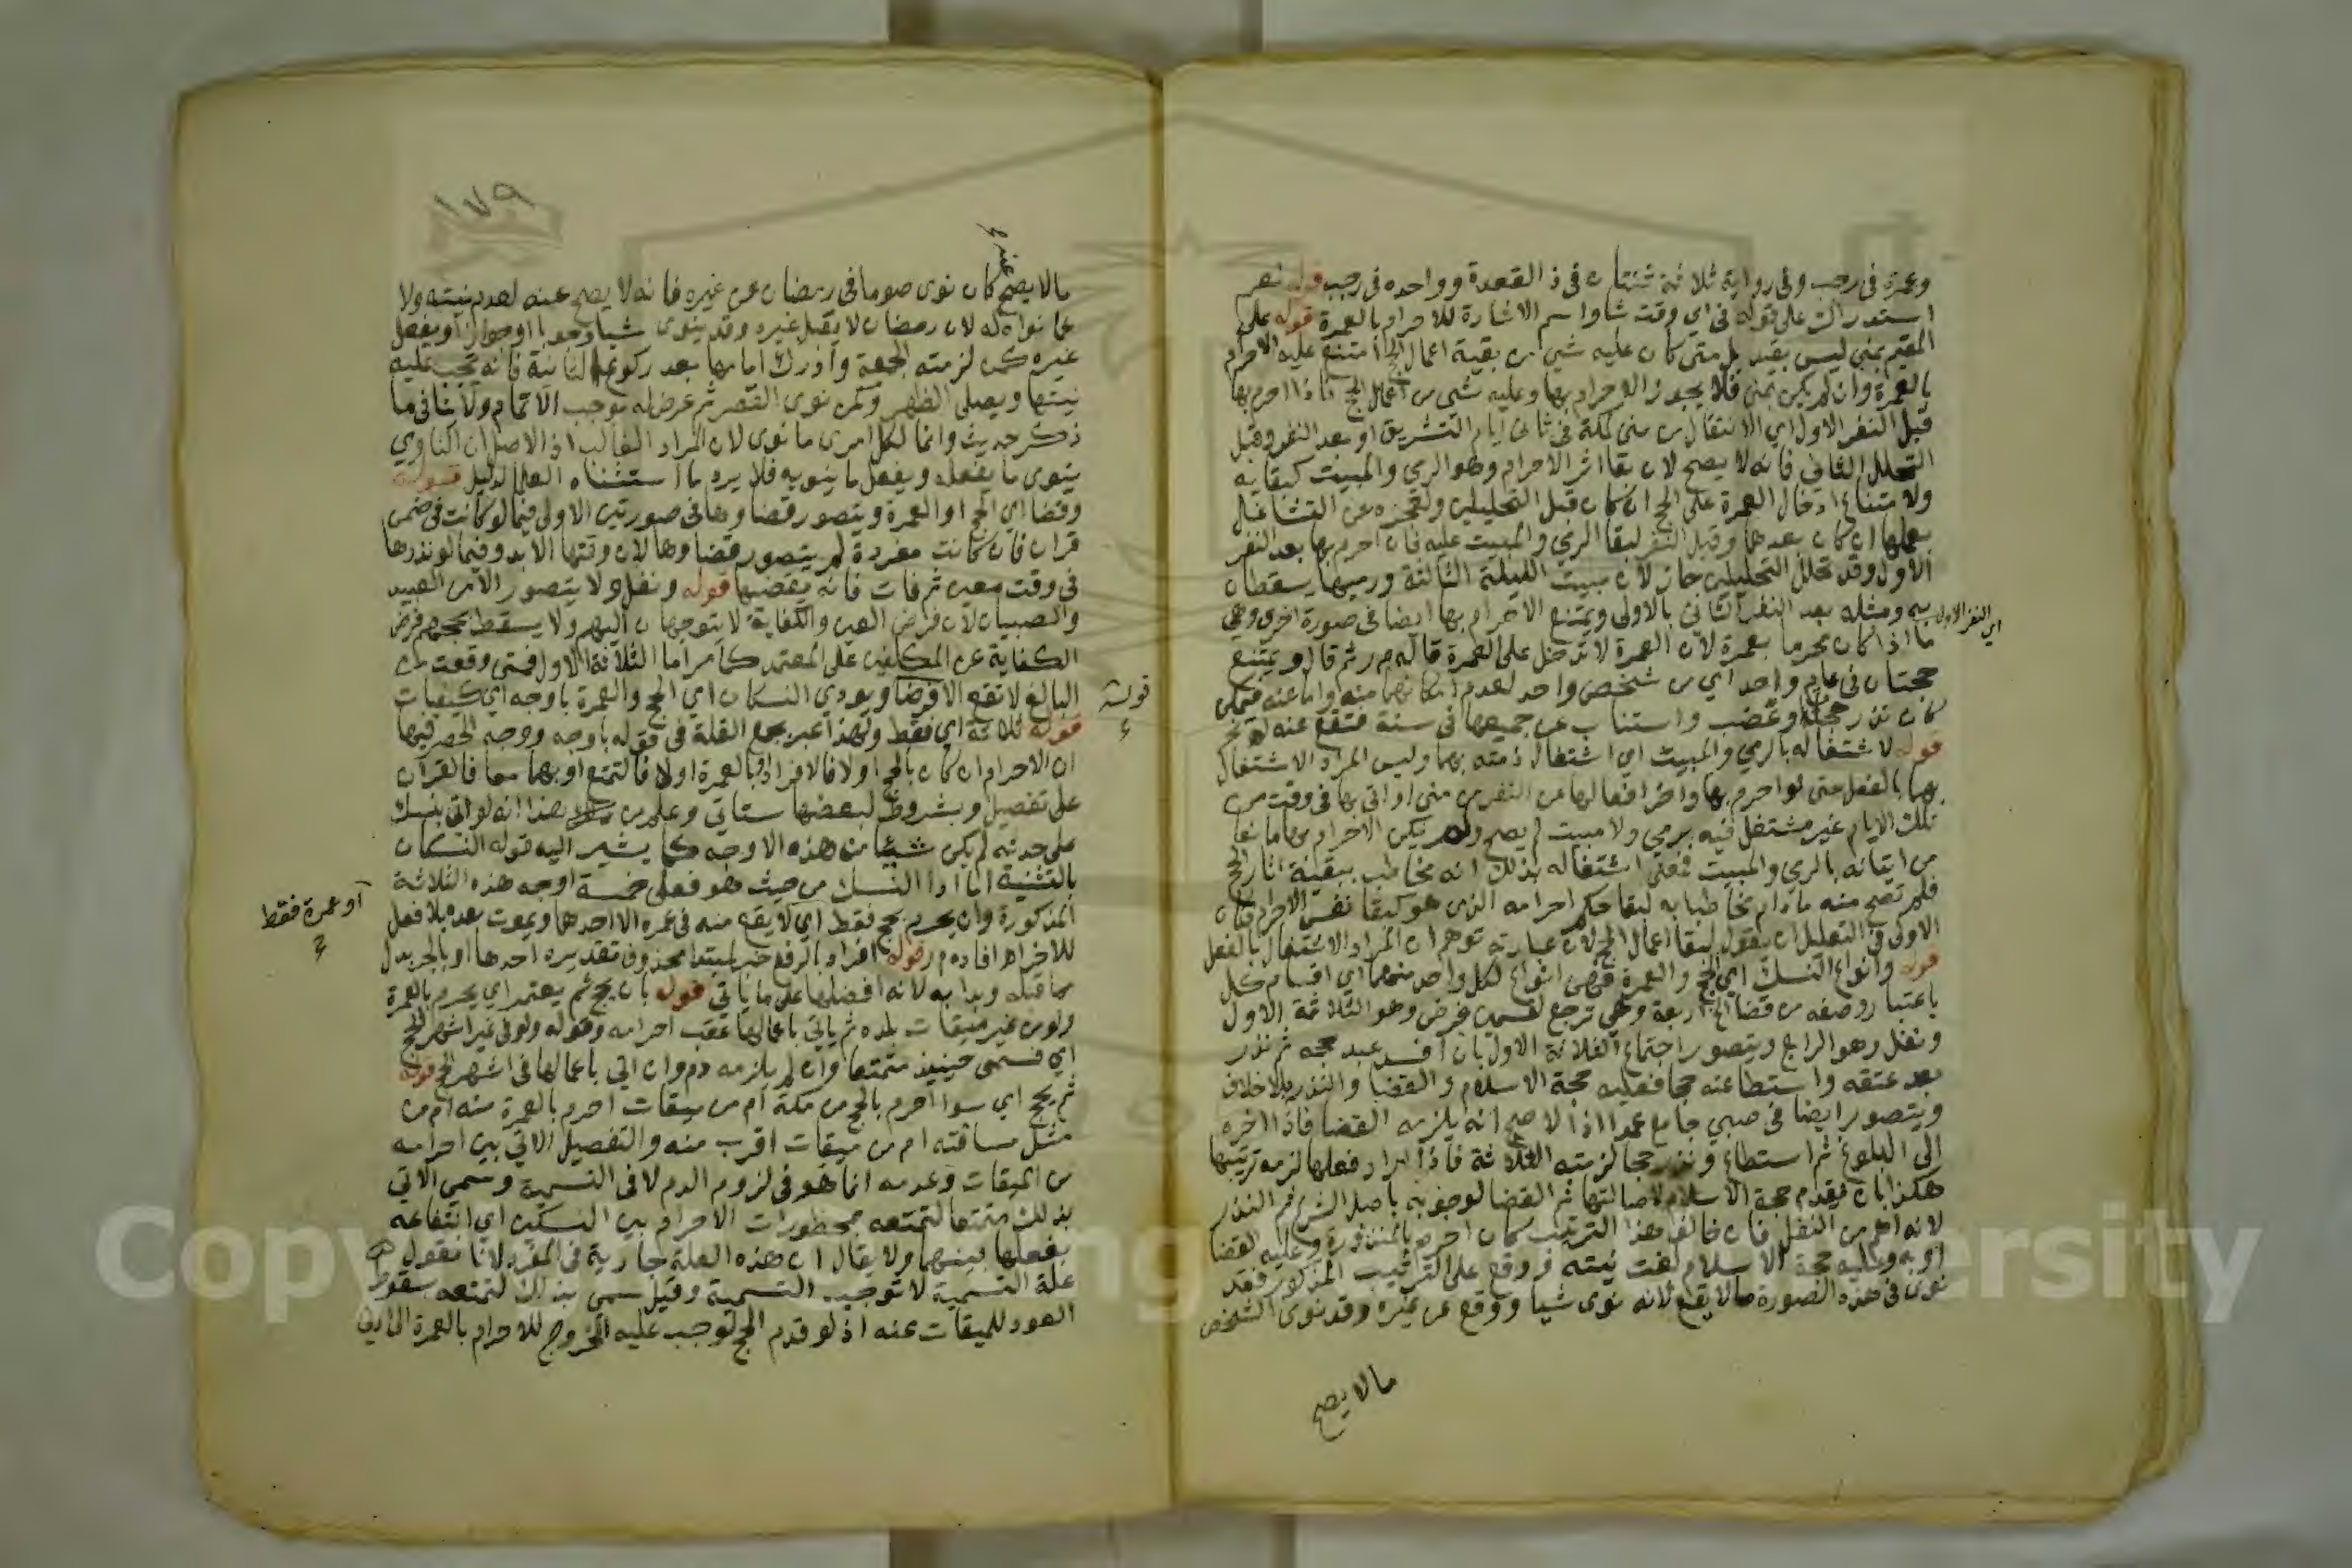 وعمرة في رجب وفي رواية ثلاثة ثنتان في ذ القعدة وواحده في رجب قوله نعم
استدراك على قوله في اي وقت شا واسم الاشارة للاحرام بالعمرة قوله على
المقيم بمنى ليس بقيد بل متى كان عليه شي من بقية اعمال الحج امتنع عليه الاحرام
بالعمرة وان لم يكن بمنى فلا يجوز الاحرام بها وعليه شي من اعمال الحج فاذا احرم بها
قبل النفر الاول اي الانتقال من منى لمكة في ثاني ايام التشريق او بعد النفر وقبل
التحلل الثاني فانه لا يصح لان بقا اثر الاحرام وهو الرمي والمبيت كبقايه
ولامتناع ادخال العمرة على الحج ان كان قبل التحليلين ولعجزه عن التشاغل
بعملها ان كان بعدهما وقبل النفر لبقا الرمي والمبيت عليه فان احرم بها بعد النفر
الاول وقد تحلل التحليلين جاز لان مبيت الليلة الثالثة ورميها يسقطان
به ومثله بعد النفر الثاني بالاولى ويمتنع الاحرام بها ايضا في صورة اخرى وهي
اي النفر الاول
ما اذا كان محرما بعمرة لان العمرة لا تدخل على العمرة قاله م ر ثم قال ويمتنع
حجتان في عام واحد اي من شخص واحد لعدم امكانهما منه واما عنه فيمكن
كان نذر حججا وعضب واستناب من جميعها في سنة فتقع عنه
قوله لاشتغاله بالرمي والمبيت اي اشتغال ذمته بهما وليس المراد الاشتغال
بهما بالفعل حتى لو احرم بها واخر افعالها عن النفر من منى او اتى بها في وقت من
تلك الايام غير مشتغل فيه برمي ولا مبيت لم يصح ولم يكن الاحرام بها مانعا
من اتيانه بالرمي والمبيت فمعنى اشتغاله بذلك انه مخاطب ببقية اثار الحج
فلم تصح منه ما دام مخاطبا به لبقا حكم احرامه الذي هو كبقا نفس الاحرام فكان
الاولى في التعليل ان يقول لبقا اعمال الحج لان عبارته توهم ان المراد الاشتغال بالفعل
قوله وانواع النسك اي الحج والعمرة فهي انواع لكل واحد منهما اي اقسام كل
باعتبار وصفه من قضا الخ اربعة وهي ترجع لقسمين فرض وهو الثلاثة الاول
ونفل وهو الرابع ويتصور اجتماع الثلاثة الاول بان افسد عبد حجه ثم نذر
بعد عتقه واستطاعته حجا فعليه حجة الاسلام والقضا والنذر بلا خلاف
ويتصور ايضا في صبي جامع عمدا اذ الاصح انه يلزمه القضا فاذا اخره
الى البلوغ ثم استطاع ونذر حجا لزمته الثلاثة فاذا اراد فعلها لزمه ترتيبها
هكذا بان يقدم حجة الاسلام لاصالتها ثم القضا لوجوبه باصل الشرع ثم النذر
لانه اهم من النفل فان خالف هذا الترتيب كان احرم بالمنذورة وعليه القضا
او به وعليه حجة الاسلام لغت نيته ووقع على الترتيب المذكور فقد
نوى في هذه الصورة ما لا يقع لانه نوى شيا ووقع عن غيره وقد نوى الشخص
مالا يصح
١٧٩
مالا يصح كان نوى صوما في رمضان عن غيره فانه لا يصح عنه لعدم نيته ولا
عما نواه له لان رمضان لا يقبل غيره وقد ينوى شيا وجوبا او جوازا ويفعل
غيره كمن لزمته الجمعة وادرك امامها بعد ركوع الثانية فانه يجب عليه
نيتها ويصلى الظهر وكمن نوى القصر ثم عرض له موجب الاتمام ولا ينافي ما
ذكر حديث وانما لكل امرى ما نوى لان المراد الغالب اذ الاصل ان الناوي
ينوى ما يفعله ويفعل ما ينويه فلا يرد ما استثناه العلما لدليل قوله
وقضا اي الحج او العمرة ويتصور قضاوها في صورتين الاولى فيما لو كانت في ضمن
قران فان كانت مفردة لم يتصور قضاوها لان وقتها الابد وفيما لو نذرها
في وقت معين ثم فات فانه يقضيها قوله ونفل ولا يتصور الا من العبيد
والصبيان لان فرض العين والكفاية لا يتوجهان اليهم ولا يسقط بحجهم فرض
الكفاية عن المكلفين على المعتمد كما مر اما الثلاثة الاول فمتى وقعت من
البالغ لا تقع الا فرضا ويودي النسكان اي الحج والعمرة باوجه اي كيفيات
قوله
قوله ثلاثة اي فقط ولهذا عبر بجمع القلة في قوله باوجه ووجه الحصر فيها
ان الاحرام ان كان بالحج اولا فالافراد او بالعمرة اولا فالتمتع او بهما معا فالقران
على تفصيل وبشروط لبعضها ستاتي وعلم من هذا انه لو اتى بنسك
على حدته لم يكن شيئا من هذه الاوجه كما يشير اليه قوله النسكان
بالتثنية اما اداا النسك من حيث هو فعلى خمسة اوجه هذه الثلاثة
المذكورة وان يحرم بحج فقط اي لا يقع منه في عمره الا احدهما ويموت بعده بلا فعل
او عمرة فقط
للاخر افاده م ر قوله افراد بالرفع خبر لمبتدا محذوف تقديره احدها او بالجر بدل
مما قبله وبدا به لانه افضلها على ما ياتي قوله بان يحج ثم يعتمر اي يحرم بالعمرة
ولو من غير ميقات بلده ثم ياتي باعمالها عقب احرامه وقوله ولو في غير اشهر الحج
اي فيسمى حينيذ متمتعا وان لم يلزمه دم وان اتي باعمالها في اشهر الحج قوله
ثم يحج اي سوا احرم بالحج من مكة ام من ميقات احرم بالعمرة منه ام من
مثل مسافته ام من ميقات اقرب منه والتفصيل الاتي بين احرامه
من الميقات وعدمه انما هو في لزوم الدم لا في التسمية وسمي الاتي
بذلك متمتعا لتمتعه بمحظورات الاحرام بين النسكين اي انتفاعه
بفعلها بينهما ولا يقال ان هذه العلة جارية في المفرد لانا نقول
علة التسمية لا توجب التسمية وقيل سمى بذلك لتمتعه بسقوط
العود للميقات عنه اذ لو قدم الحج لوجب عليه الخروج للاحرام بالعمرة الى ادنى